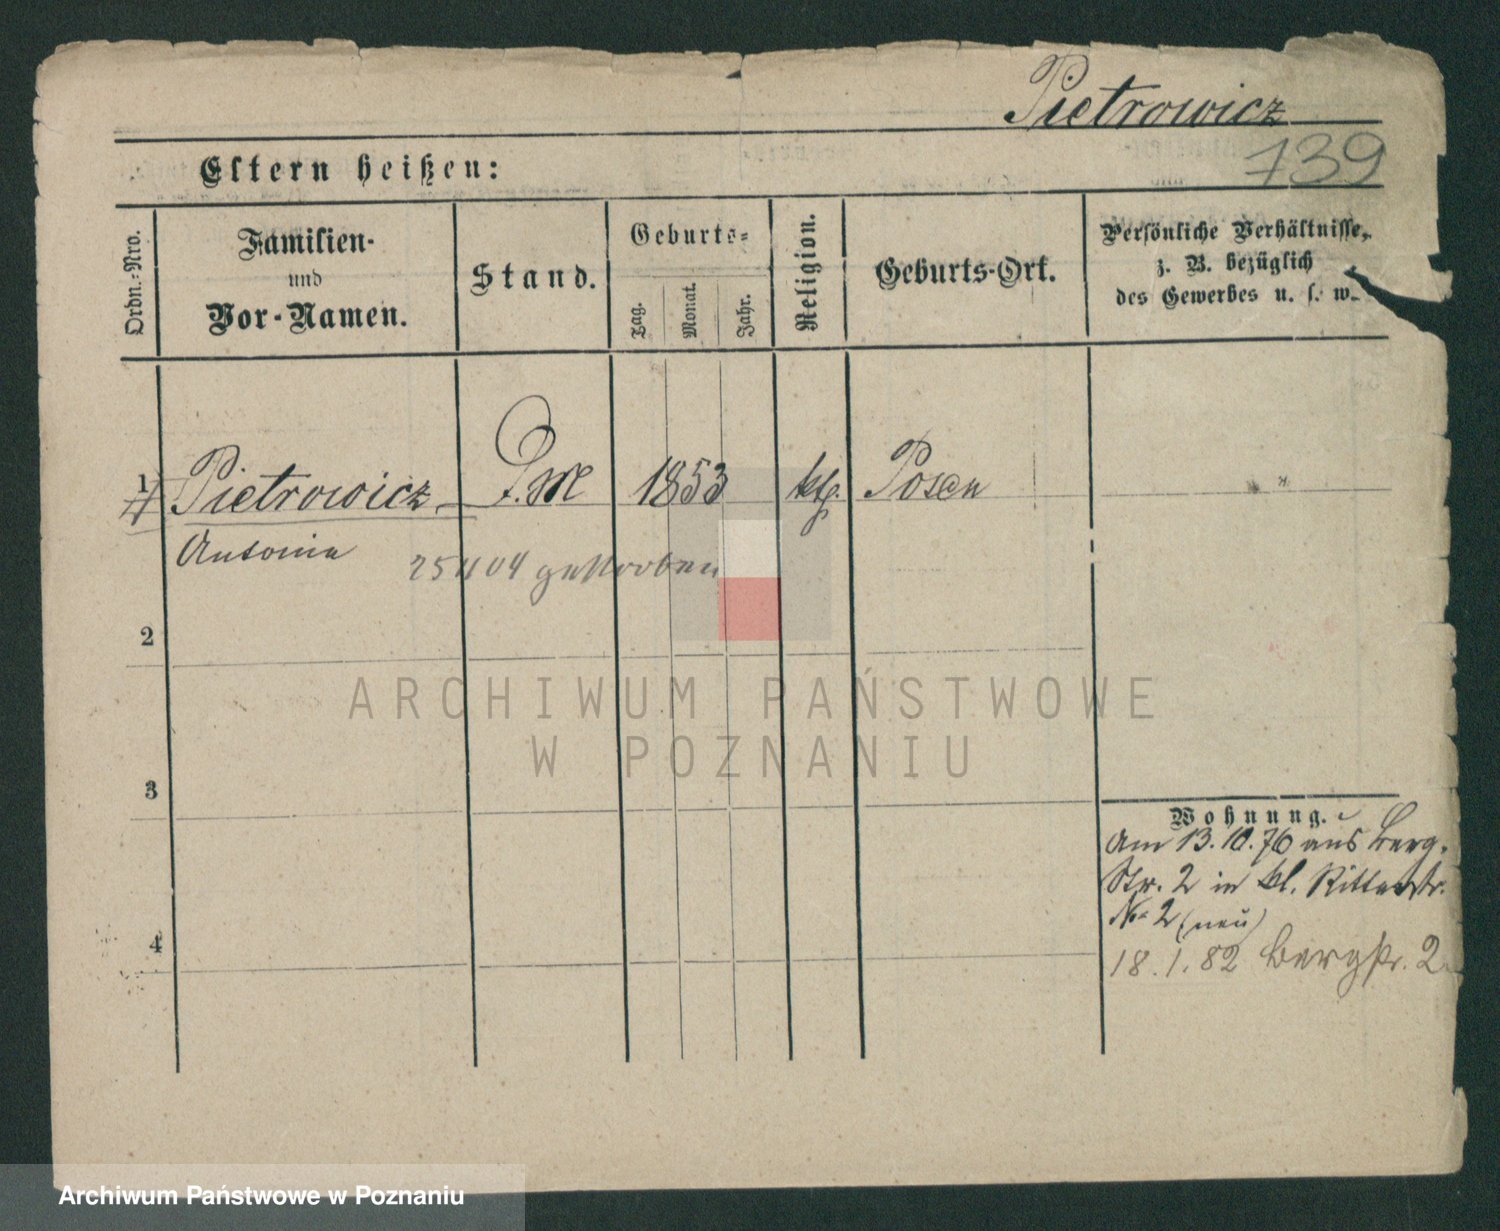 Pietrowicz
739
Eltern heißen:
Ordn.-Nro.
Familien-
und
Vor-Namen.
Stand.
Geburts-
Tag.
Monat.
Jahr.
Religion.
Geburts-Ort.
Persönliche Verhältnisse,
z. B. bezüglich
des Gewerbes u. s. w.
1 Pietrowicz 1853 kth. Posen
Antonia
gestorben
2
3
4
Wohnung.
Am 13.10.76 aus Berg-
Str. 2 in kl. Ritterstr.
No 2 (neu)
18.1.82 Bergstr. 2
ARCHIWUM PAŃSTWOWE
W POZNANIU
Archiwum Państwowe w Poznaniu